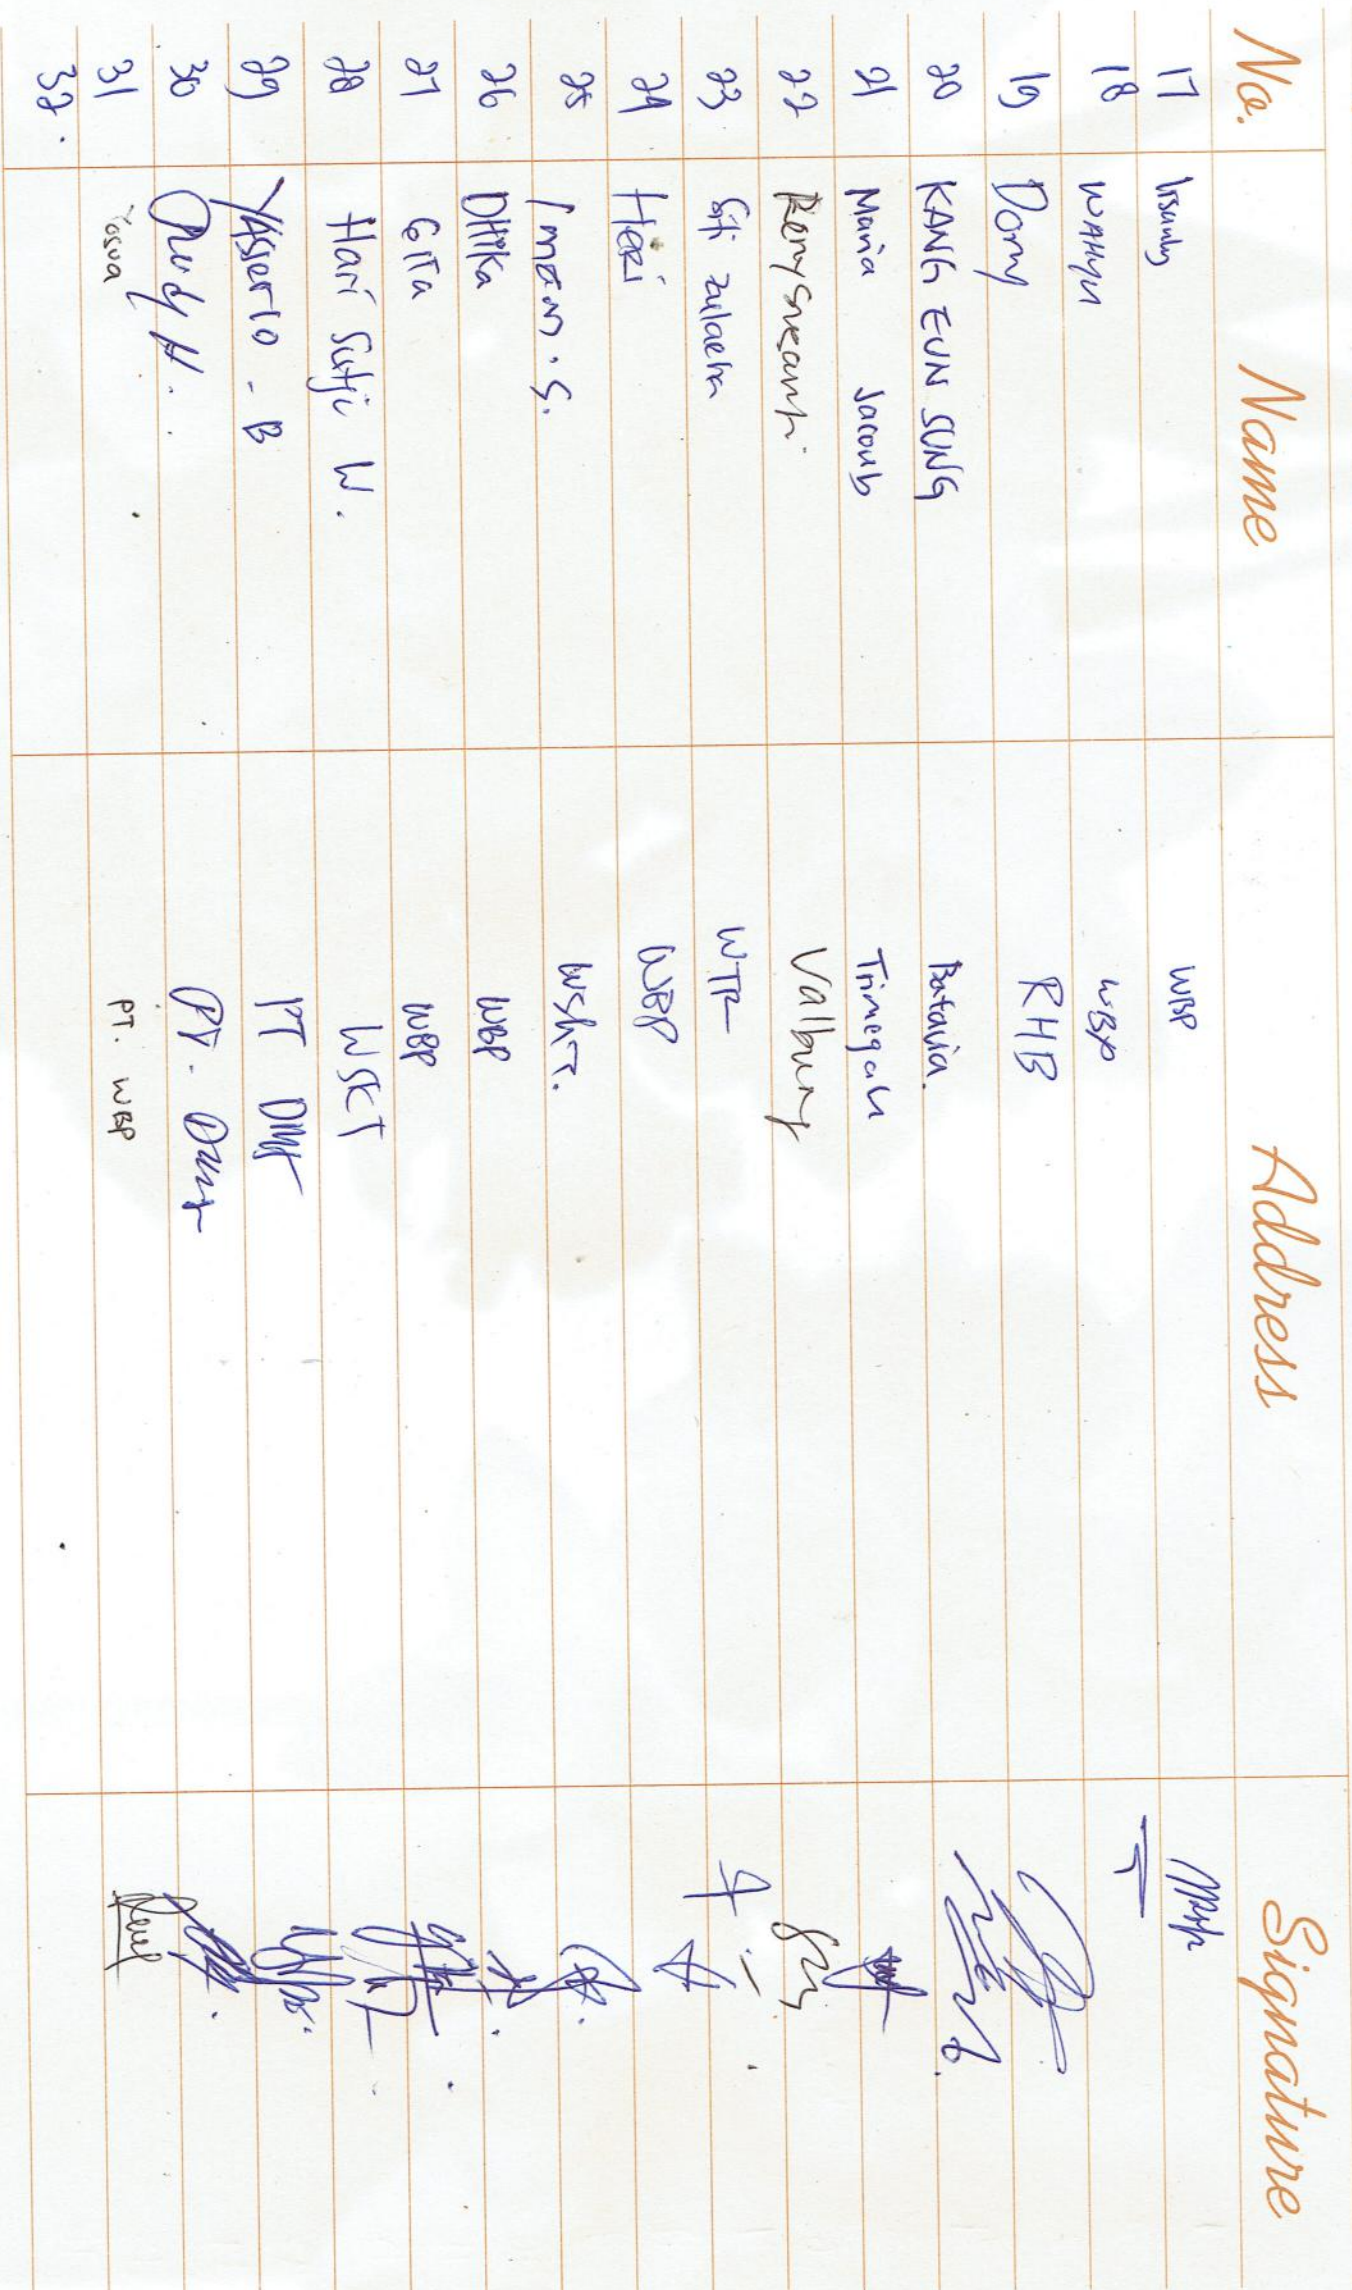 No. Name Address Signature
17 WBP
18 WAHYU WBP
19 Dony RHB
20 KANG EUN SUNG Batavia.
21 Maria Jacoub Trimegah
22 Valbury
23 Siti Zulaeha WTR
24 HERI WBP
25 Imam. S.
26 DHIKA WBP
27 GITA WBP
28 Hari Sutji W. WSKT
29 YASSERIO - B PT
30 Rudy H. PT.
31 Yosua PT. WBP
32.